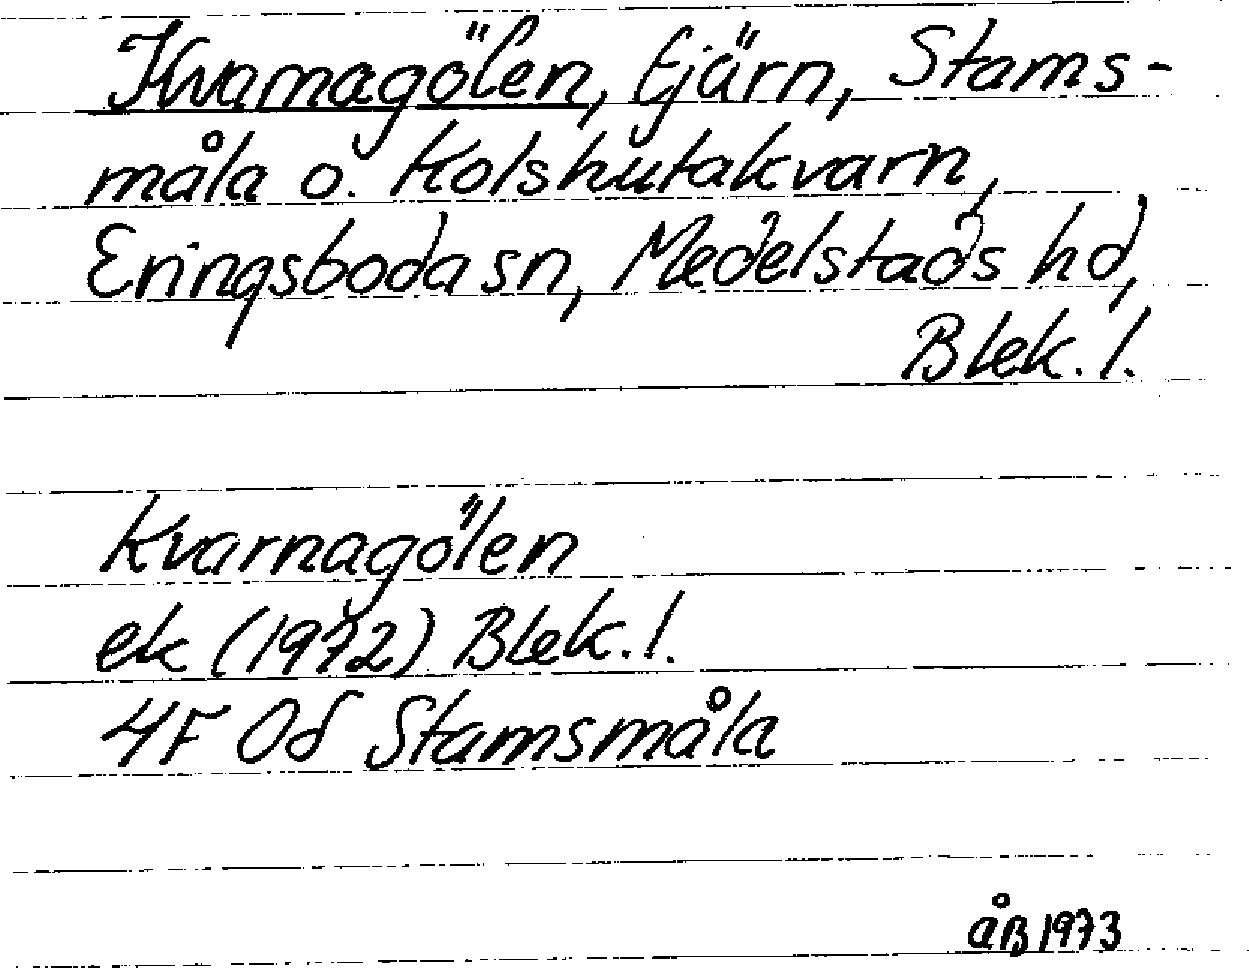 Kvarnagölen, tjärn, Stams-
måla o. Kolshutakvarn,
Eringsboda sn, Medelstads hd,
Blek. l.
Kvarnagölen
ek (1972) Blek. l.
4F 0d Stamsmåla
åB 1973